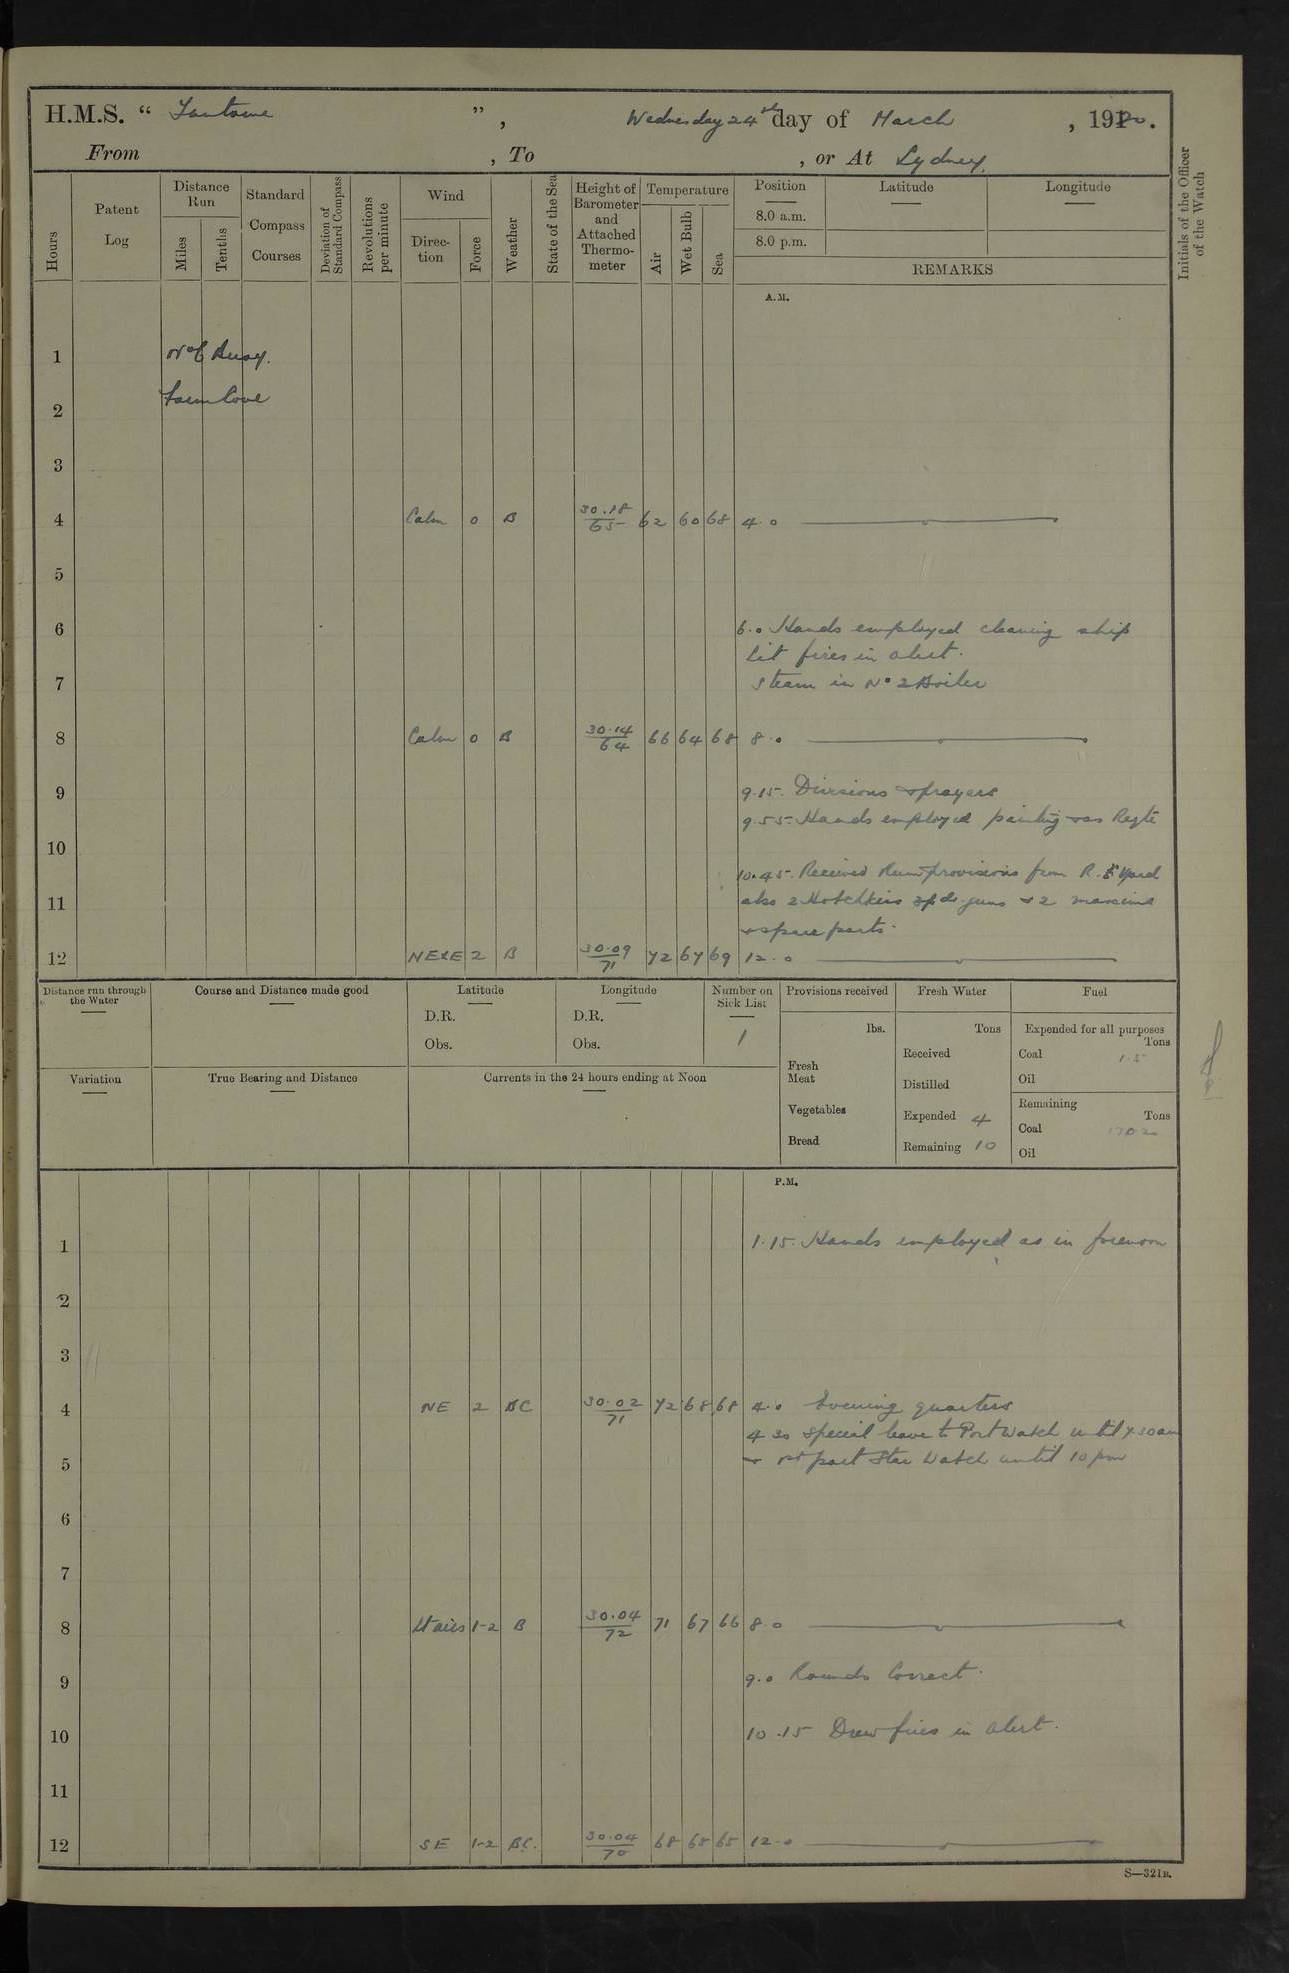 H.M.S. " Fantome ", Wednesday 24th day of March, 1920.
From , To , or At Sydney.
Hours
Patent Log
Distance Run
Miles
Tenths
Standard Compass Courses
Deviation of Standard Compass
Revolutions per minute
Wind
Direc-tion
Force
Weather
State of the Sea
Height of Barometer and Attached Thermo-meter
Temperature
Air
Wet Bulb
Sea
Position
8.0 a.m.
8.0 p.m.
Latitude
Longitude
REMARKS
Initials of the Officer of the Watch
A.M.
1 No 6 Buoy.
2 Farm Cove
3
4 Calm 0 B 30.18/65 62 60 68 4.0
5
6 6.0 Hands employed cleaning ship
Lit fires in Alert.
7 Steam in No 2 Boiler
8 Calm 0 B 30.14/64 66 64 68 8.0
9 9.15. Divisions & prayers
9.55 Hands employed painting & as Reqte
10
10.45. Received Rum & provisions from R.E. Yard
11 also 2 Hotchkiss 3pdr guns & 2 maxims
& spare parts.
12 NExE 2 B 30.09/71 72 67 69 12.0
Distance run through the Water
Course and Distance made good
Latitude
D.R.
Obs.
Longitude
D.R.
Obs.
Number on Sick List
1
Provisions received
lbs.
Fresh Meat
Vegetables
Bread
Fresh Water
Tons
Received
Distilled
Expended 4
Remaining 10
Fuel
Expended for all purposes
Tons
Coal 1.5
Oil
Remaining
Tons
Coal
Oil
Variation
True Bearing and Distance
Currents in the 24 hours ending at Noon
P.M.
1 1.15. Hands employed as in forenoon
2
3
4 NE 2 BC 30.02/71 72 68 68 4.0 Evening quarters
4 30 Special leave to Port Watch until 7 30 am
5 & 1st part Star Watch until 10 pm
6
7
8 Lt airs 1-2 B 30.04/72 71 67 66 8.0
9 9.0 Rounds Correct.
10 10.15 Drew fires in Alert.
11
12 SE 1-2 BC. 30.04/70 68 65 65 12.0
S—321B.